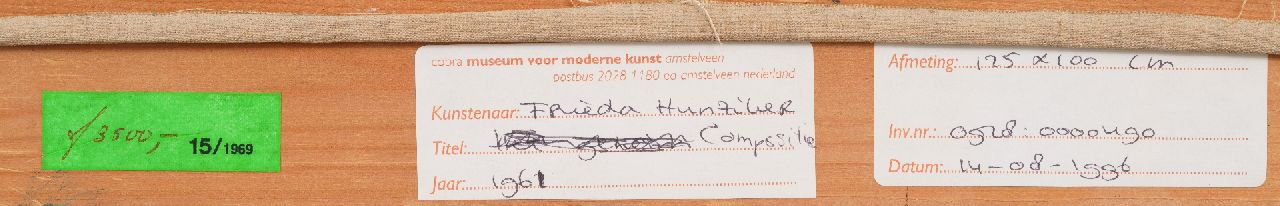 ƒ 3500,- 15/1969
cobra museum voor moderne kunst amstelveen
postbus 2028 1180 ea amstelveen nederland
Kunstenaar: Frieda Hunziker
Titel: Compositie
Jaar: 1961
Afmeting: 125 x 100 cm
Inv.nr.: 0528:0000490
Datum: 14-08-1996